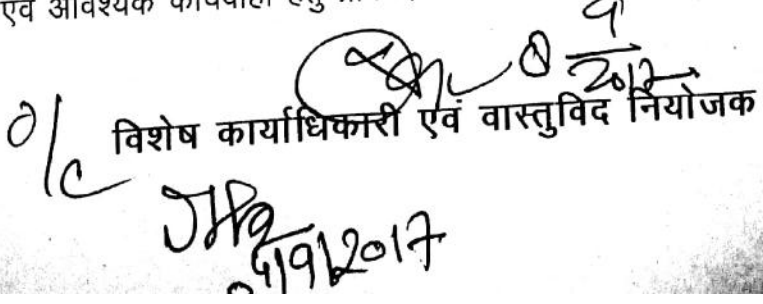 एवं आवश्यक कार्यवाही हेतु
9
2017
o/c विशेष कार्याधिकारी एवं वास्तुविद नियोजक
9/2017